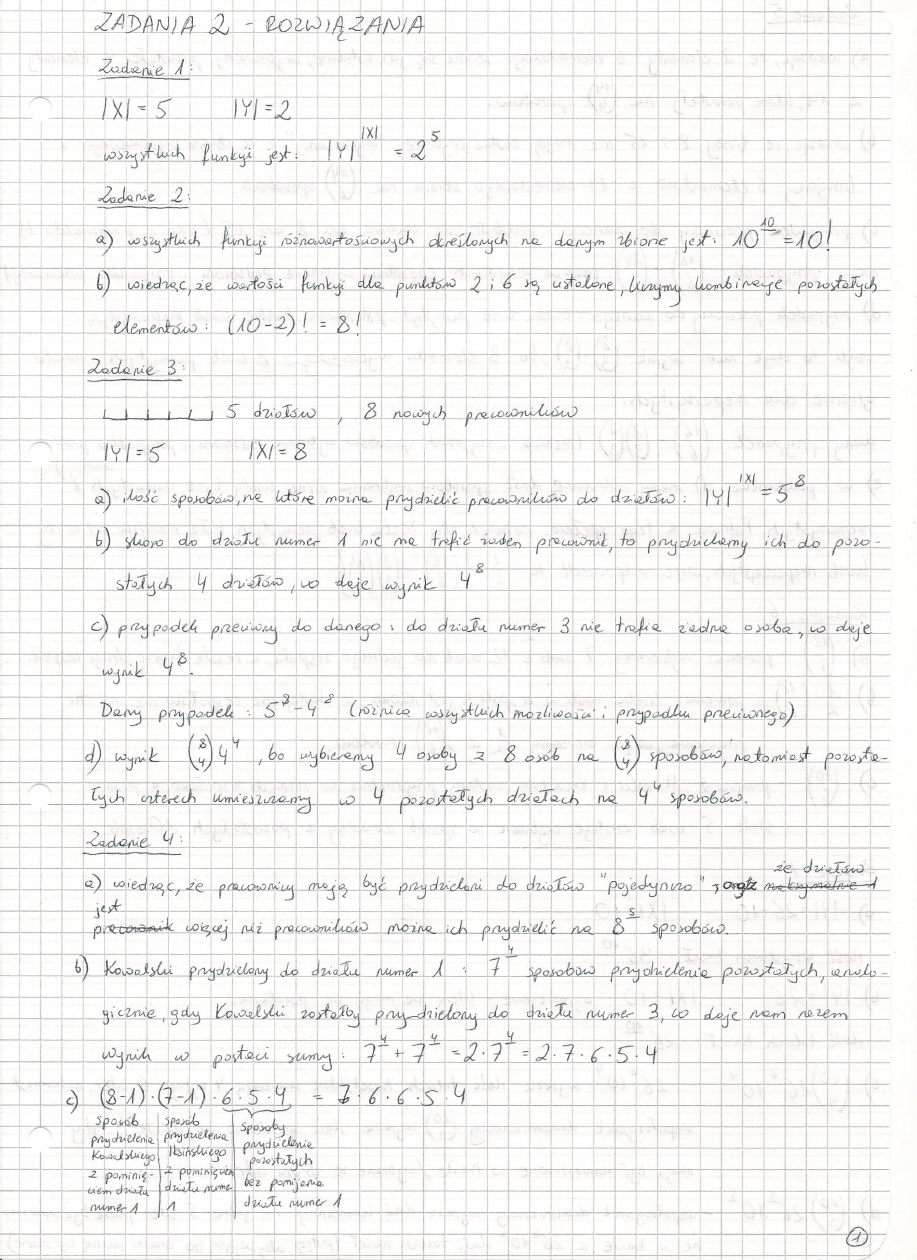 ZADANIA 2 - ROZWIĄZANIA
Zadanie 1:
|X| = 5 |Y| = 2
wszystkich funkcji jest: |Y|^|X| = 2^5
Zadanie 2:
a) wszystkich funkcji różnowartościowych określonych na danym zbiorze jest: 10^10 = 10!
b) wiedząc, że wartości funkcji dla punktów 2 i 6 są ustalone, liczymy kombinacje pozostałych
elementów: (10-2)! = 8!
Zadanie 3:
5 działów, 8 nowych pracowników
|Y| = 5 |X| = 8
a) ilość sposobów, na które można przydzielić pracowników do działów: |Y|^|X| = 5^8
b) skoro do działu numer 1 nie ma trafić żaden pracownik, to przydzielamy ich do pozo-
stałych 4 działów, co daje wynik 4^8
c) przypadek przeciwny do danego: do działu numer 3 nie trafia żadna osoba, co daje
wynik 4^8.
Dany przypadek: 5^8 - 4^8 (różnica wszystkich możliwości i przypadku przeciwnego)
d) wynik (8 4) 4^4, bo wybieramy 4 osoby z 8 osób na (8 4) sposobów, natomiast pozosta-
łych czterech umieszczamy w 4 pozostałych działach na 4^4 sposobów.
Zadanie 4:
że działów
a) wiedząc, że pracownicy mają być przydzielani do działów "pojedynczo", oraz maksymalnie 1
jest
pracownik więcej niż pracowników można ich przydzielić na 8^5 sposobów.
b) Kowalski przydzielony do działu numer 1: 7^4 sposobów przydzielenia pozostałych, analo-
gicznie, gdy Kowalski zostałby przydzielony do działu numer 3, co daje nam razem
wynik w postaci sumy: 7^4 + 7^4 = 2·7^4 = 2·7·6·5·4
c) (8-1)·(7-1)·6·5·4 = 7·6·6·5·4
sposób przydzielenia Kowalskiego z pominię-ciem działu numer 1
sposób przydzielenia Iksińskiego z pominięciem działu numer 1
sposoby przydzielenia pozostałych bez pomijania działu numer 1
1